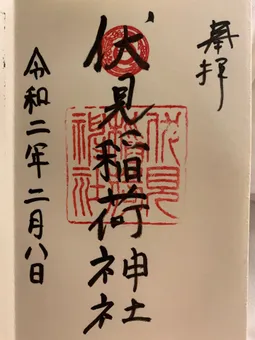 奉拝
伏見稲荷神社
令和二年二月八日